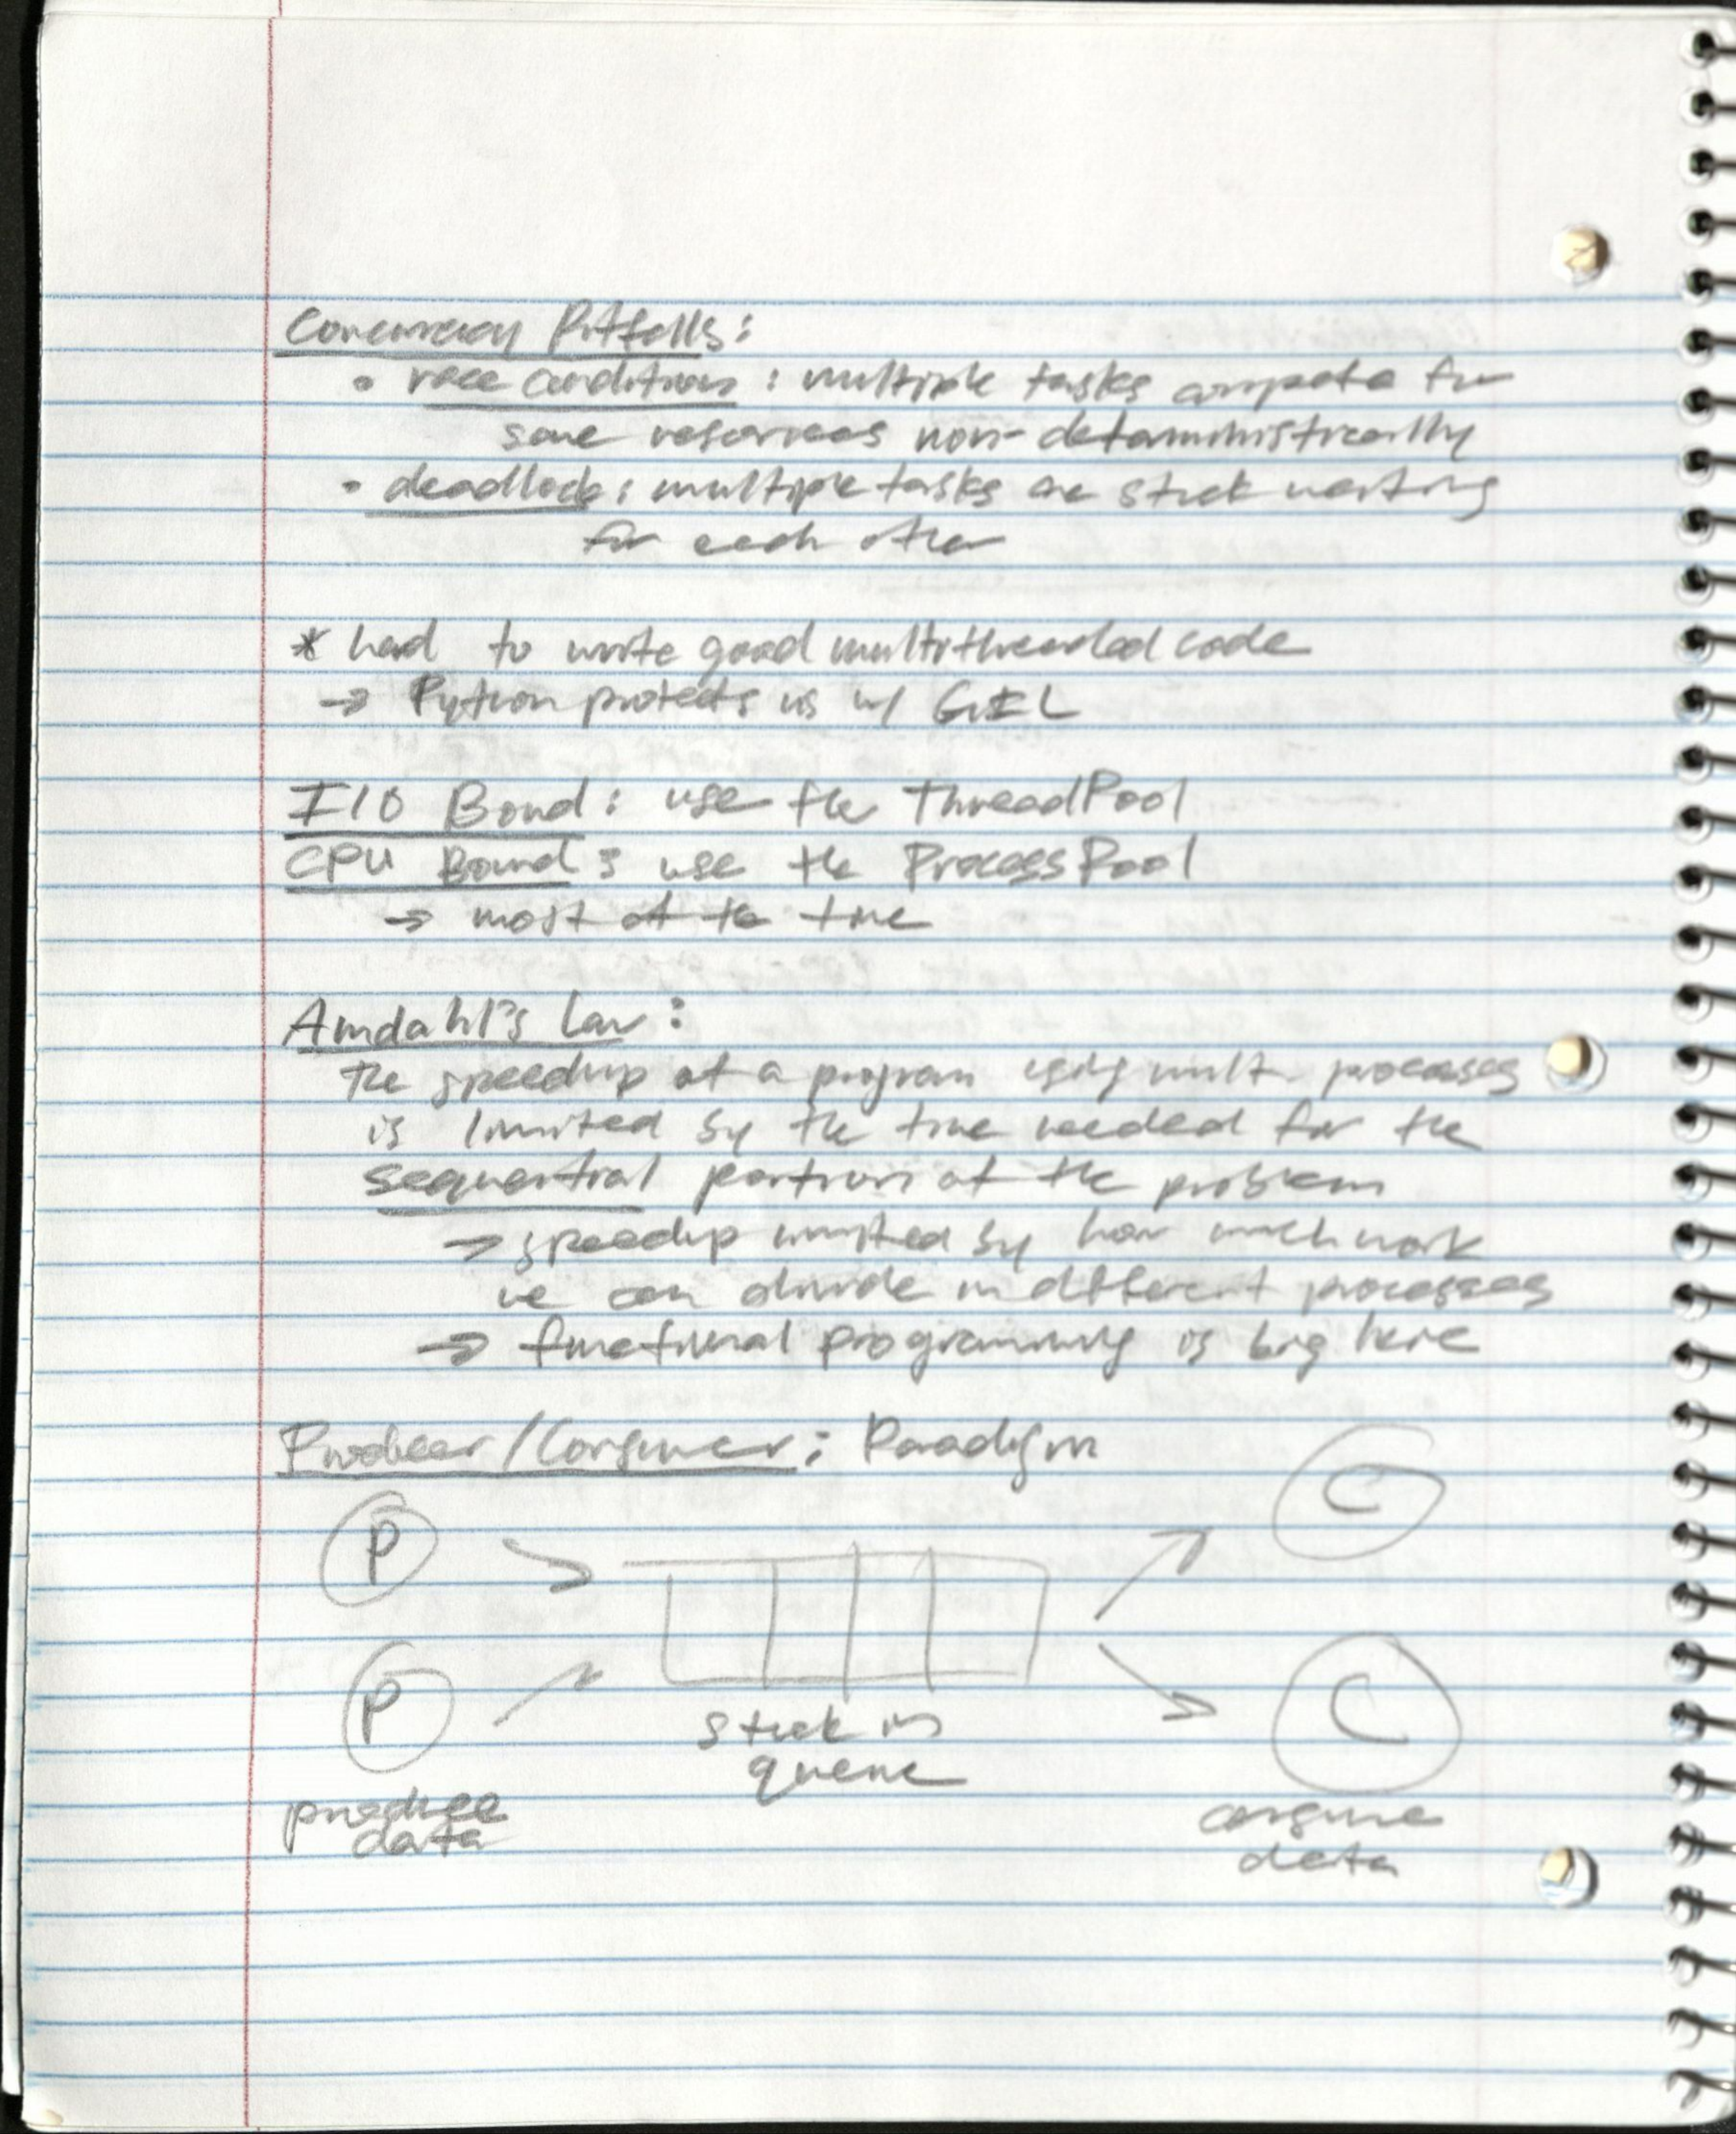 Concurrency Pitfalls:
• race conditions: multiple tasks compete for
same resources non-deterministically
• deadlock: multiple tasks are stuck waiting
for each other
* hard to write good multithreaded code
→ Python protects us w/ GIL
I/O Bound: use the ThreadPool
CPU Bound: use the ProcessPool
→ most of the time
Amdahl's Law:
the speedup of a program using mult. processes
is limited by the time needed for the
sequential portion of the problem
→ speedup limited by how much work
we can divide in different processes
→ functional programming is big here
Producer/Consumer: Paradigm
P
C
P
C
stick in
queue
produce
data
consume
data